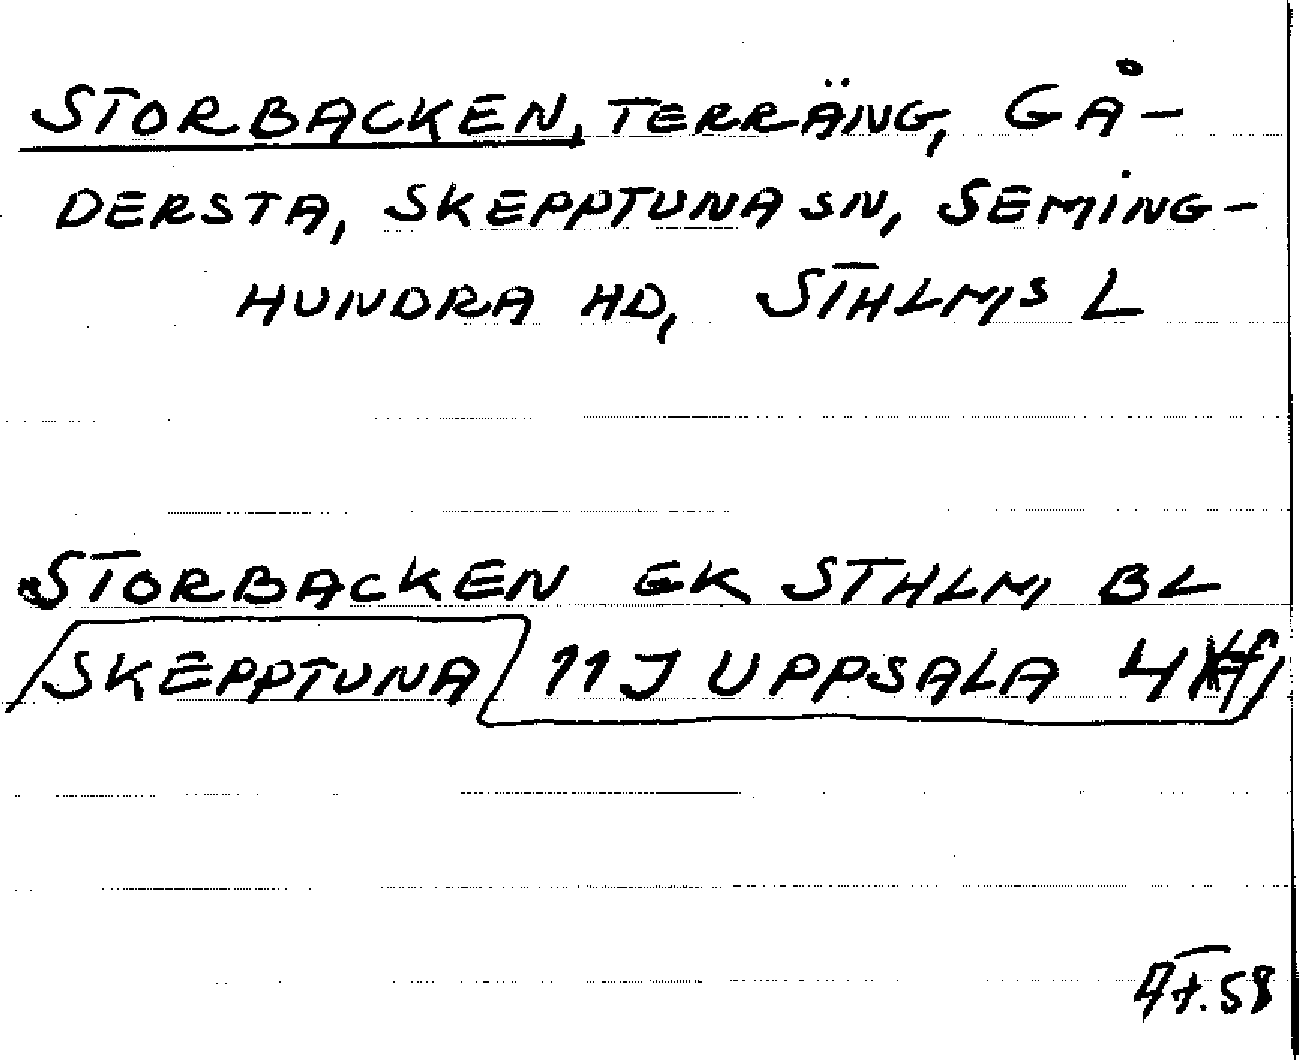 STORBACKEN, TERRÄNG, GÅ-
DERSTA, SKEPPTUNA SN, SEMING-
HUNDRA HD, STHLMS L
STORBACKEN EK STHLM, BL
SKEPPTUNA 11J UPPSALA 4